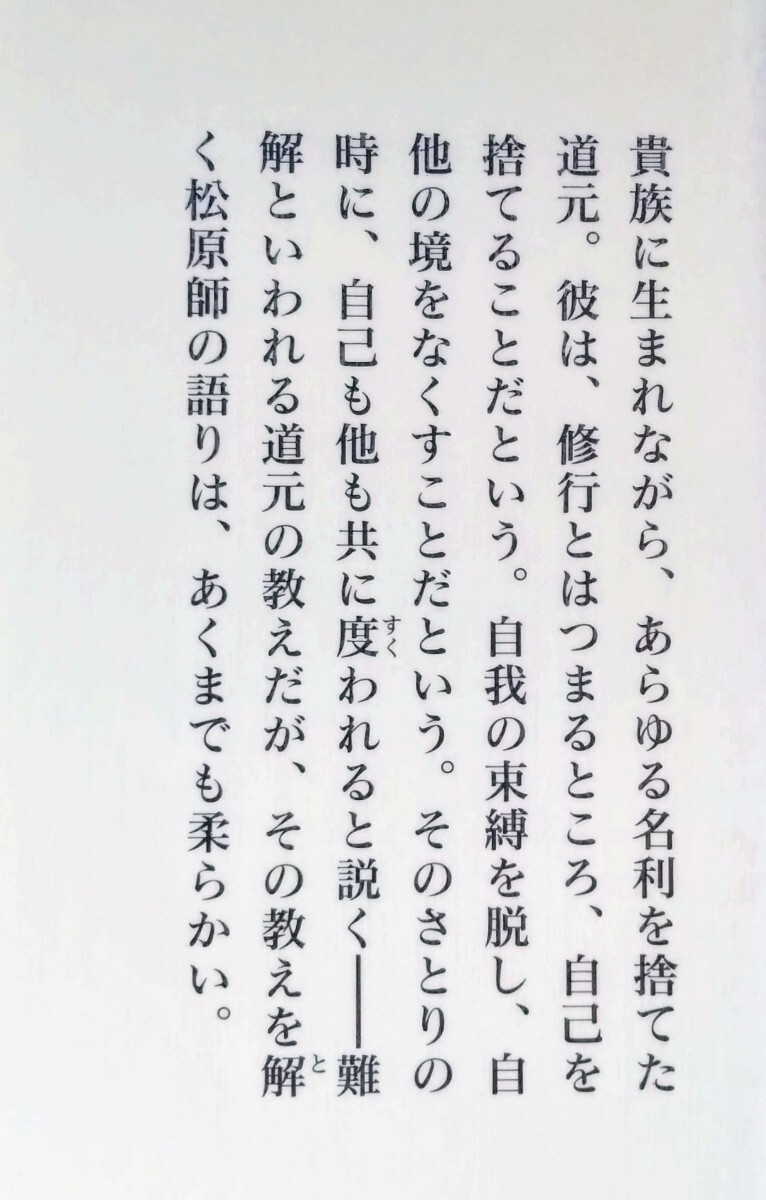 貴族に生まれながら、あらゆる名利を捨てた
道元。彼は、修行とはつまるところ、自己を
捨てることだという。自我の束縛を脱し、自
他の境をなくすことだという。そのさとりの
時に、自己も他も共に度われると説く――難
解といわれる道元の教えだが、その教えを解
く松原師の語りは、あくまでも柔らかい。
すく
と